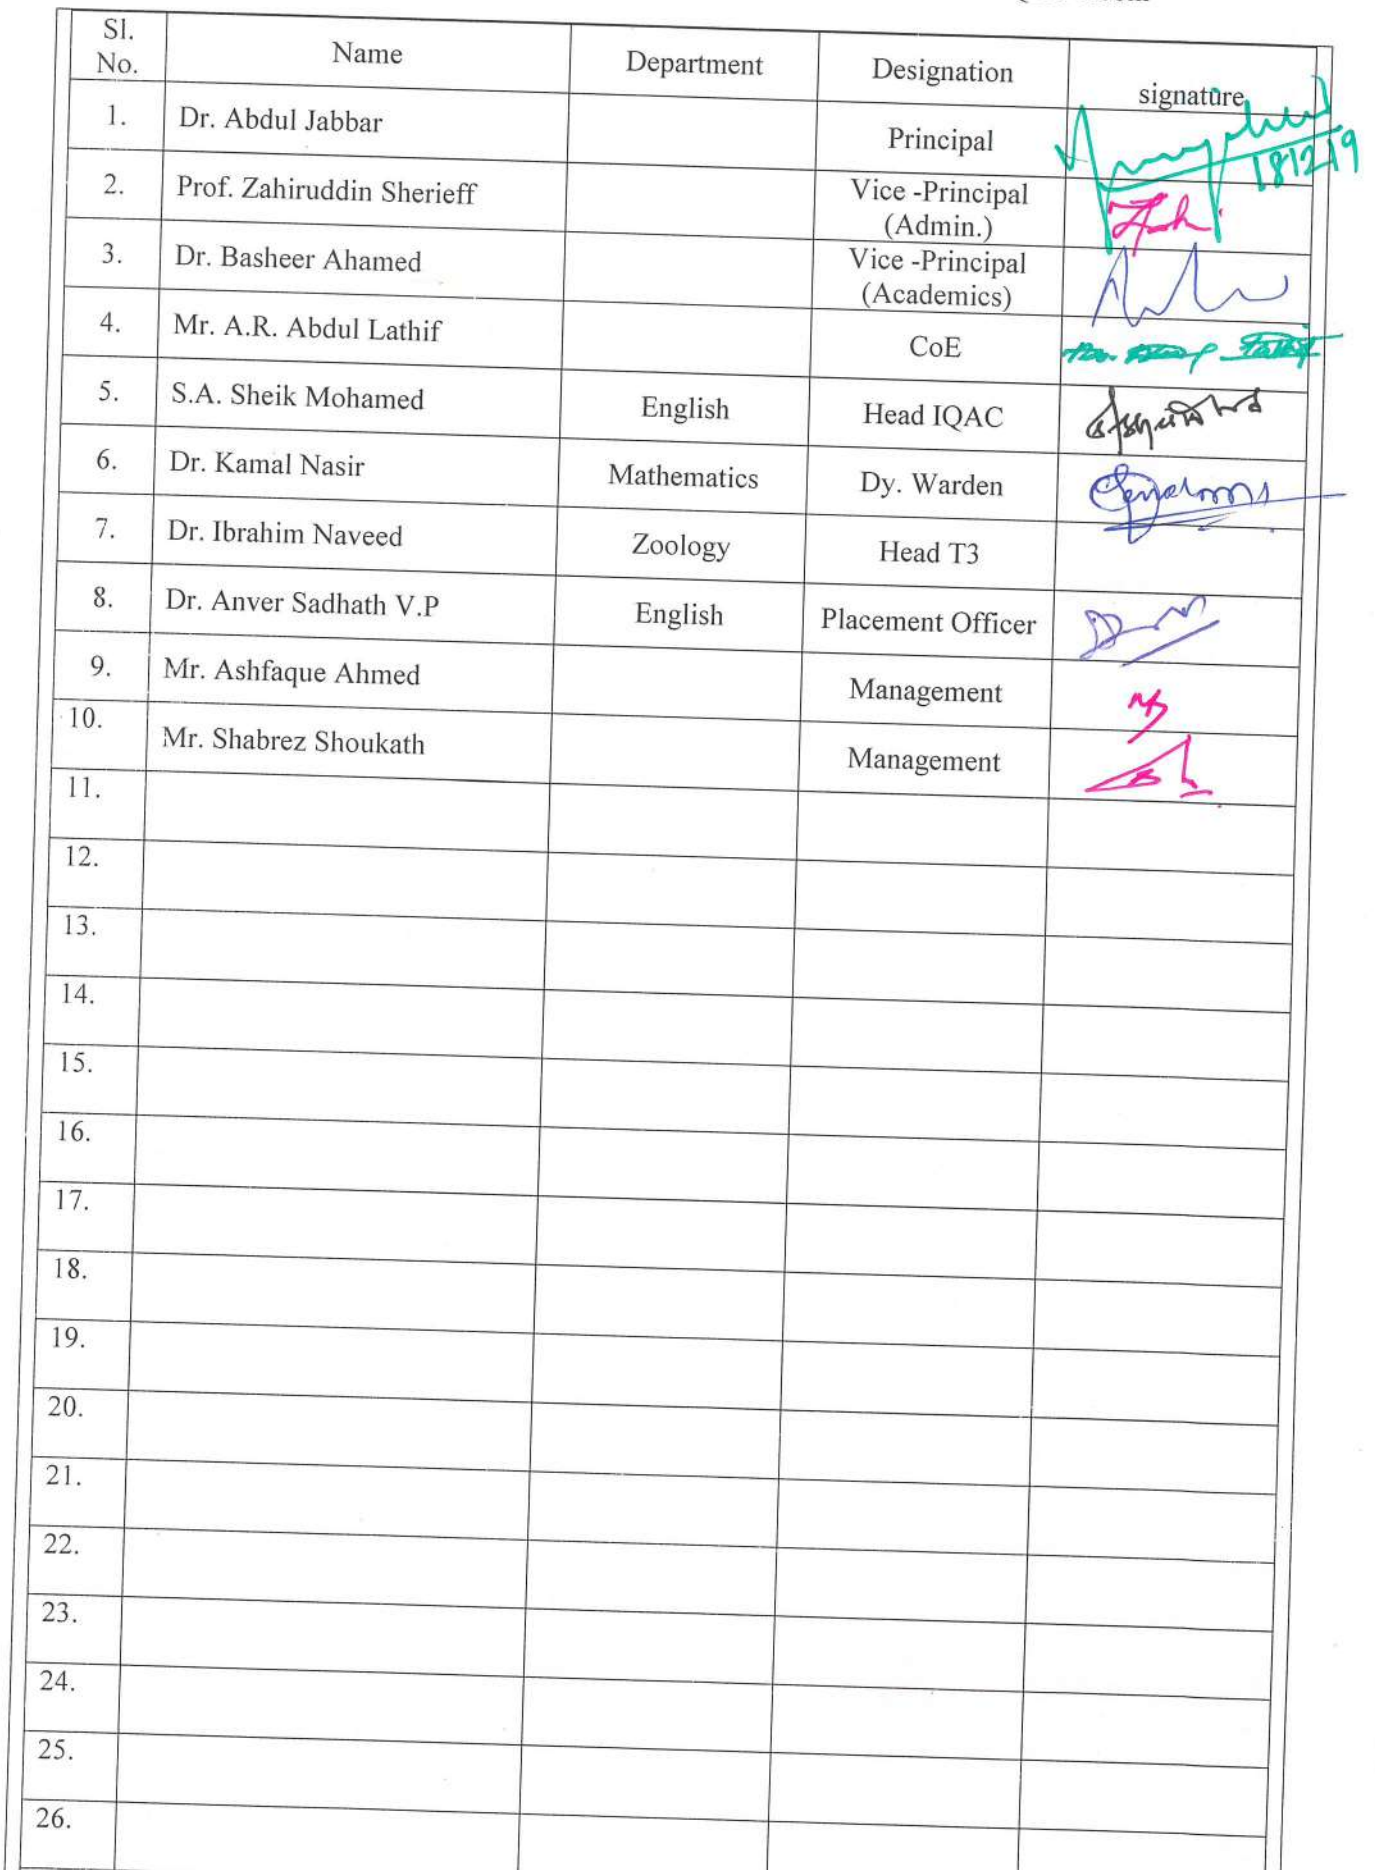 Sl. No. Name Department Designation signature
1. Dr. Abdul Jabbar Principal
181219
2. Prof. Zahiruddin Sherieff Vice -Principal (Admin.)
3. Dr. Basheer Ahamed Vice -Principal (Academics)
4. Mr. A.R. Abdul Lathif CoE
5. S.A. Sheik Mohamed English Head IQAC
6. Dr. Kamal Nasir Mathematics Dy. Warden
7. Dr. Ibrahim Naveed Zoology Head T3
8. Dr. Anver Sadhath V.P English Placement Officer
9. Mr. Ashfaque Ahmed Management
10. Mr. Shabrez Shoukath Management
11.
12.
13.
14.
15.
16.
17.
18.
19.
20.
21.
22.
23.
24.
25.
26.